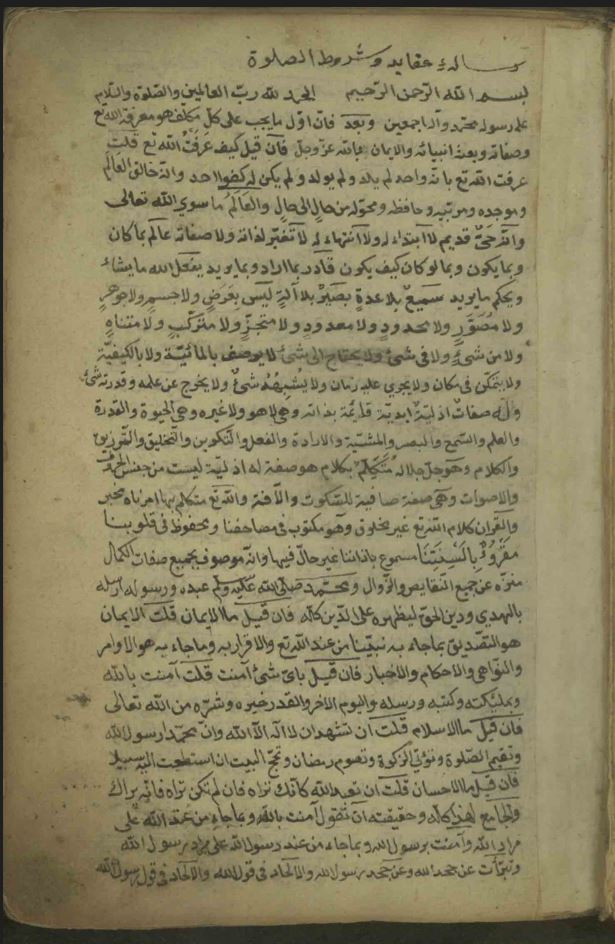 رسالهٔ عقايد وشروط الصلوة
بسم الله الرحمن الرحيم الحمد لله رب العالمين والصلوة والسلام
على رسوله محمد وآله اجمعين وبعد فان اول ما يجب على كل مكلف هو معرفة الله تع
وصفاته وبعث انبيائه والايمان بالله عز وجل فان قيل كيف عرفت الله تع قلت
عرفت الله تع بانه واحد لم يلد ولم يولد ولم يكن له كفوا احد وانه خالق العالم
وموجده ومربّيه وحافظه ومحوّله من حال الى حال والعالم ما سوى الله تعالى
وانه حىّ قديم لا ابتداء له ولا انتهاء له لا تغيّر لذاته ولا صفاته عالم بما كان
وبما يكون وبما لو كان كيف يكون قادر بما اراد وبما يريد يفعل الله ما يشاء
ويحكم ما يريد سميع بلا عدة بصير بلا آلة ليس بعرض ولا جسم ولا جوهر
ولا مصوّر ولا محدود ولا معدود ولا متجزّ ولا متركّب ولا متناه
ولا من شئ ولا فى شئ ولا يحتاج الى شئ لا يوصف بالمائيّة ولا بالكيفيّة
ولا يتمكّن فى مكان ولا يجرى عليه زمان ولا يشبهه شئ ولا يخرج عن علمه وقدرته شئ
وله صفات ازليّة ابديّة قائمة بذاته وهى لا هو ولا غيره وهى الحيوة والقدرة
والعلم والسمع والبصر والمشيّة والارادة والفعل والتكوين والتخليق والترزيق
والكلام وهو جل جلاله متكلّم بكلام هو صفة له ازليّة ليست من جنس الحروف
والاصوات وهى صفة منافية للسكوت والآفة والله تع متكلم بها امر ناه مخبر
والقران كلام الله تع غير مخلوق وهو مكتوب فى مصاحفنا ومحفوظ فى قلوبنا
مقروّ بالسنتنا مسموع باذاننا غير حالّ فيها وانه موصوف بجميع صفات الكمال
منزه عن جميع النقايص والزوال ومحمد صلى الله عليه وسلم عبده ورسوله ارسله
بالهدى ودين الحق ليظهره على الدين كله فان قيل ما الايمان قلت الايمان
هو التصديق بما جاء به نبيّنا من عند الله تع والاقرار به وما جاء به هو الاوامر
والنواهى والاحكام والاخبار فان قيل باىّ شئ آمنت قلت آمنت بالله
وبمليكته وكتبه ورسله واليوم الاخر والقدر خيره وشرّه من الله تعالى
فان قيل ما الاسلام قلت ان تشهد ان لا اله الا الله وان محمدا رسول الله
وتقيم الصلوة وتؤتى الزكوة وتصوم رمضان وتحج البيت ان استطعت اليه سبيلا
فان قيل ما الاحسان قلت ان تعبد الله كانك تراه فان لم تكن تراه فانه يراك
والجامع لهذا كله وحقيقته ان تقول آمنت بالله وبما جاء من عند الله على
مراد الله وآمنت برسول الله وبما جاء من عند رسول الله على مراد رسول الله
وتبرّأت عن جحد الله وعن جحد رسول الله والالحاد فى قول الله والالحاد فى قول رسول الله